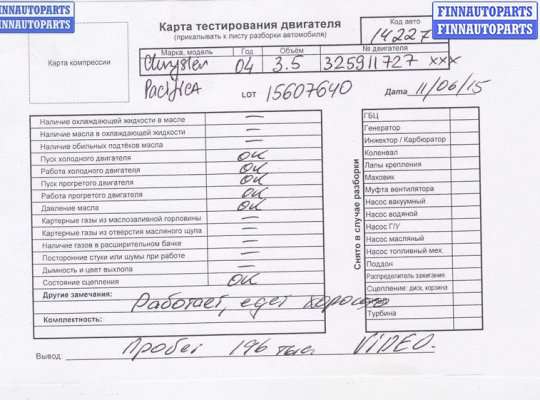 FINNAUTOPARTS
FINNAUTOPARTS
FINNAUTOPARTS
FINNAUTOPARTS
Карта тестирования двигателя
(прикалывать к листу разборки автомобиля)
Код авто
14227
Карта компрессии
Марка, модель Год Объём № двигателя
Chrysler 04 3.5 325911727 xxx
Pacifica LOT 15607640 Дата 11/06/15
Наличие охлаждающей жидкости в масле —
Наличие масла в охлаждающей жидкости —
Наличие обильных подтёков масла —
Пуск холодного двигателя ОК
Работа холодного двигателя ОК
Пуск прогретого двигателя ОК
Работа прогретого двигателя ОК
Давление масла ОК
Картерные газы из маслозаливной горловины —
Картерные газы из отверстия масляного щупа —
Наличие газов в расширительном бачке —
Посторонние стуки или шумы при работе —
Дымность и цвет выхлопа —
Состояние сцепления ОК
Другие замечания: Работает, едет хорошо
Комплектность:
Снято в случае разборки
ГБЦ
Генератор
Инжектор / Карбюратор
Коленвал
Лапы крепления
Маховик
Муфта вентилятора
Насос вакуумный
Насос водяной
Насос Г/У
Насос масляный
Насос топливный мех.
Поддон
Распределитель зажигания
Сцепление: диск, корзина
Турбина
Вывод Пробег 196 тыс VIDEO.